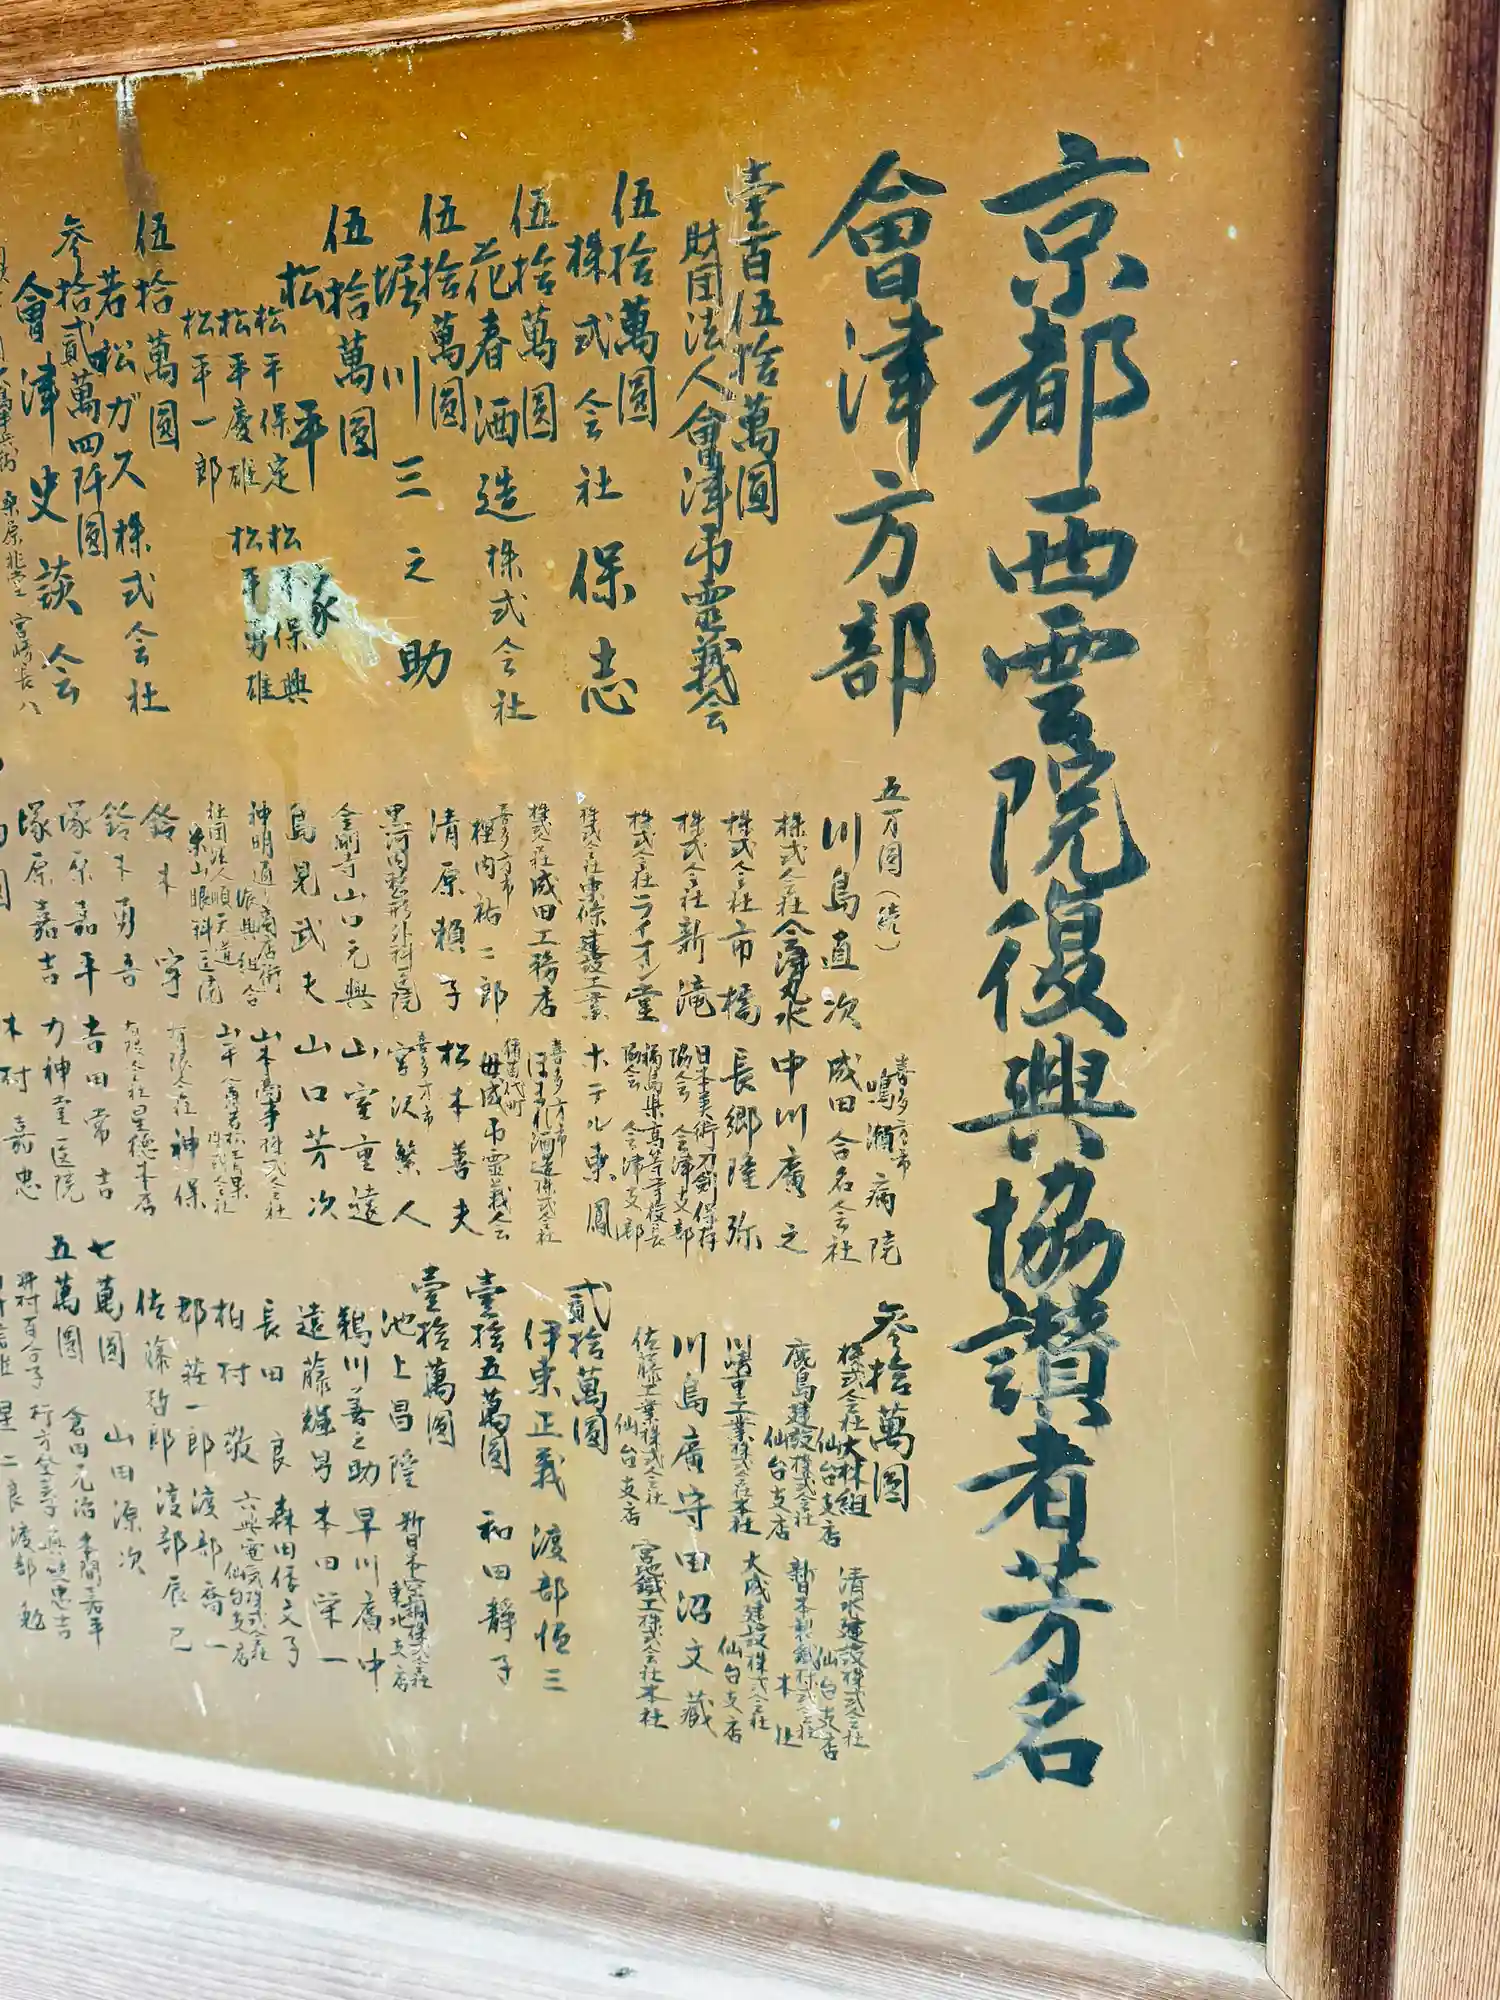 京都西雲院復興協讃者芳名
會津方部
壹百伍拾萬圓
財団法人會津弔霊義会
伍拾萬圓
株式会社保志
伍拾萬圓
花春酒造株式会社
伍拾萬圓
堀川三之助
伍拾萬圓
松平家
松平保定 松平保興
松平慶雄 松平勇雄
松平一郎
伍拾萬圓
若松ガス株式会社
参拾貳萬四阡圓
會津史談会
五万円(続)
川島直次
株式会社会津丸水
株式会社市橋
株式会社新滝
株式会社ライオン堂
株式会社東條建設工業
株式会社成田工務店
喜多方市
清原頼子
黒河内整形外科医院
金剛寺山口元興
島晃武夫
神明通り商店街
振興組合
鈴木寧
鈴木勇吾
塚原嘉平
塚原嘉吉
喜多方市
鳴瀬病院
成田合名会社
中川廣之
長郷隆弥
日本美術刀剣保存
協会 会津支部
福島県高等学校長
協会 会津支部
ホテル東鳳
喜多方市
ほまれ酒造株式会社
猪苗代町
母成弔霊義会
松本善夫
喜多方市
宮沢繁人
山室重遠
山口芳次
山本商事株式会社
有限会社神保
有限会社星徳本店
吉田常吉
力神堂医院
木村嘉忠
参拾萬圓
株式会社大林組
仙台支店
鹿島建設株式会社
仙台支店
川崎重工業株式会社本社
川島廣守
佐藤工業株式会社
仙台支店
清水建設株式会社
仙台支店
新日本製鐵株式会社
本社
大成建設株式会社
仙台支店
田沼文蔵
宮地鐵工株式会社本社
貳拾萬圓
伊東正義 渡部恒三
壹拾五萬圓
和田静子
壹拾萬圓
池上昌隆
新日本空調株式会社
東北支店
鵜川善之助 早川廣中
遠藤輝昌 本田栄一
長田良 森田信文子
柏村敬
六興電気株式会社
仙台支店
郡荘一郎 渡部喬一
佐藤哲郎 渡部辰巳
七萬圓
山田源次
五萬圓
倉田元治
井村百合子